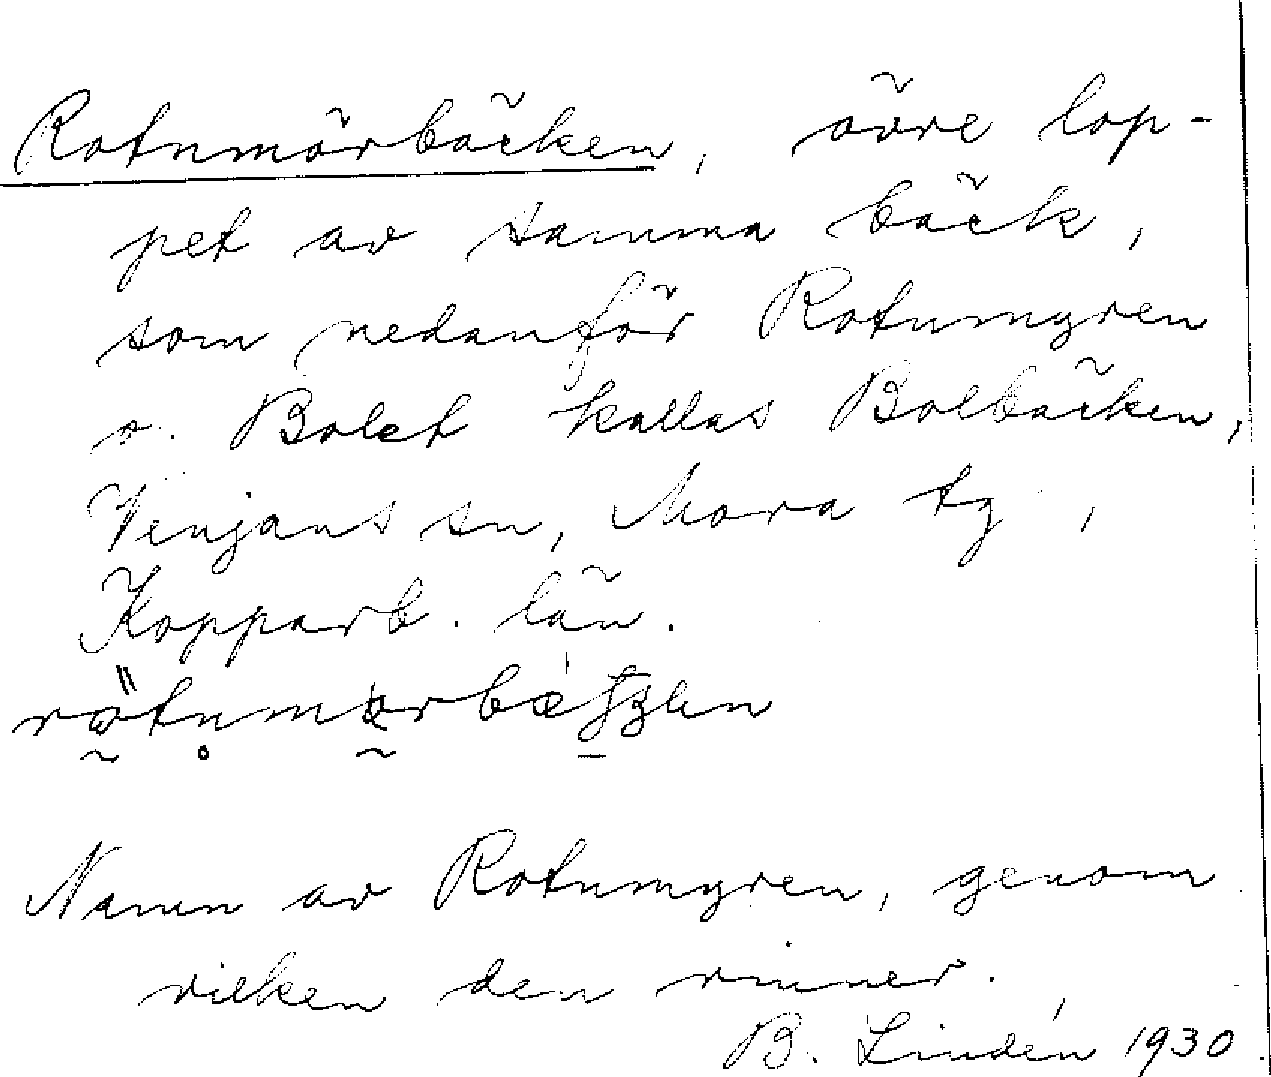 Rotnmörbäcken, övre lop-
pet av samma bäck,
som nedanför Rotnmyren
o. Bolet kallas Bolbäcken,
Venjans sn, Mora tg,
Kopparb. län.
Namn av Rotnmyren, genom
vilken den rinner.
B. Lindén 1930.